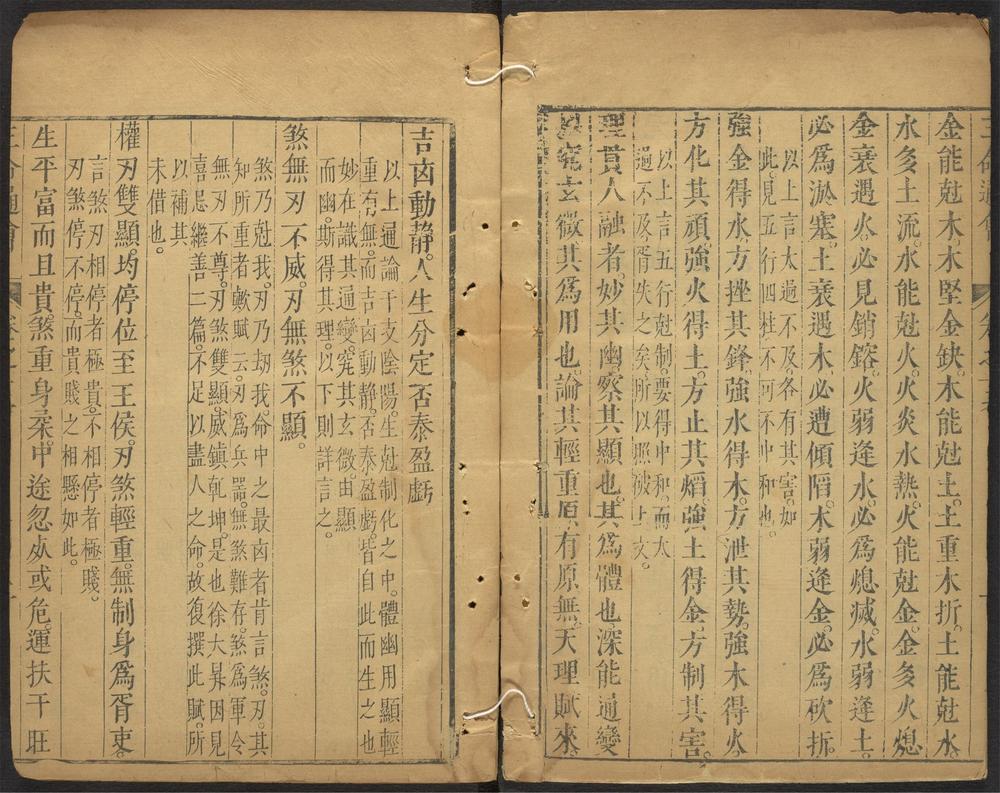 金能尅木木堅金缺木能尅土土重木折土能尅水
水多土流水能尅火火炎水熱火能尅金金多火熄
金衰遇火必見銷鎔火弱逢水必為熄滅水弱逢土
必為淤塞土衰遇木必遭傾陷木弱逢金必為砍折
以上言太過不及各有其害如
此見五行四柱不可不中和也
強金得水方挫其鋒強水得木方泄其勢強木得火
方化其頑強火得土方止其熖強土得金方制其害
以上言五行尅制要得中和而太
過不及胥失之矣所以照破上文
理貫人融者妙其幽察其顯也其為體也深能通變
究玄微其為用也論其輕重原有原無天理賦來
吉凶動靜人生分定否泰盈虧
以上通論干支陰陽生尅制化之中體幽用顯輕
重有無而吉凶動靜否泰盈虧皆自此而生之也
妙在識其通變究其玄微由顯
而幽斯得其理以下則詳言之
煞無刃不威刃無煞不顯
煞乃尅我刃乃刼我命中之最凶者肯言煞刃其
知所重者歟賦云刃為兵器無煞難存煞為軍令
無刃不尊刃煞雙顯威鎮乾坤是也徐大昇因見
喜忌繼善二篇不足以盡人之命故復撰此賦所
以補其
未借也
權刃雙顯均停位至王侯刃煞輕重無制身為胥吏
言煞刃相停者極貴不相停者極賤
刃煞停不停而貴賤之相懸如此
生平富而且貴煞重身柔中途忽夭或危運扶干旺